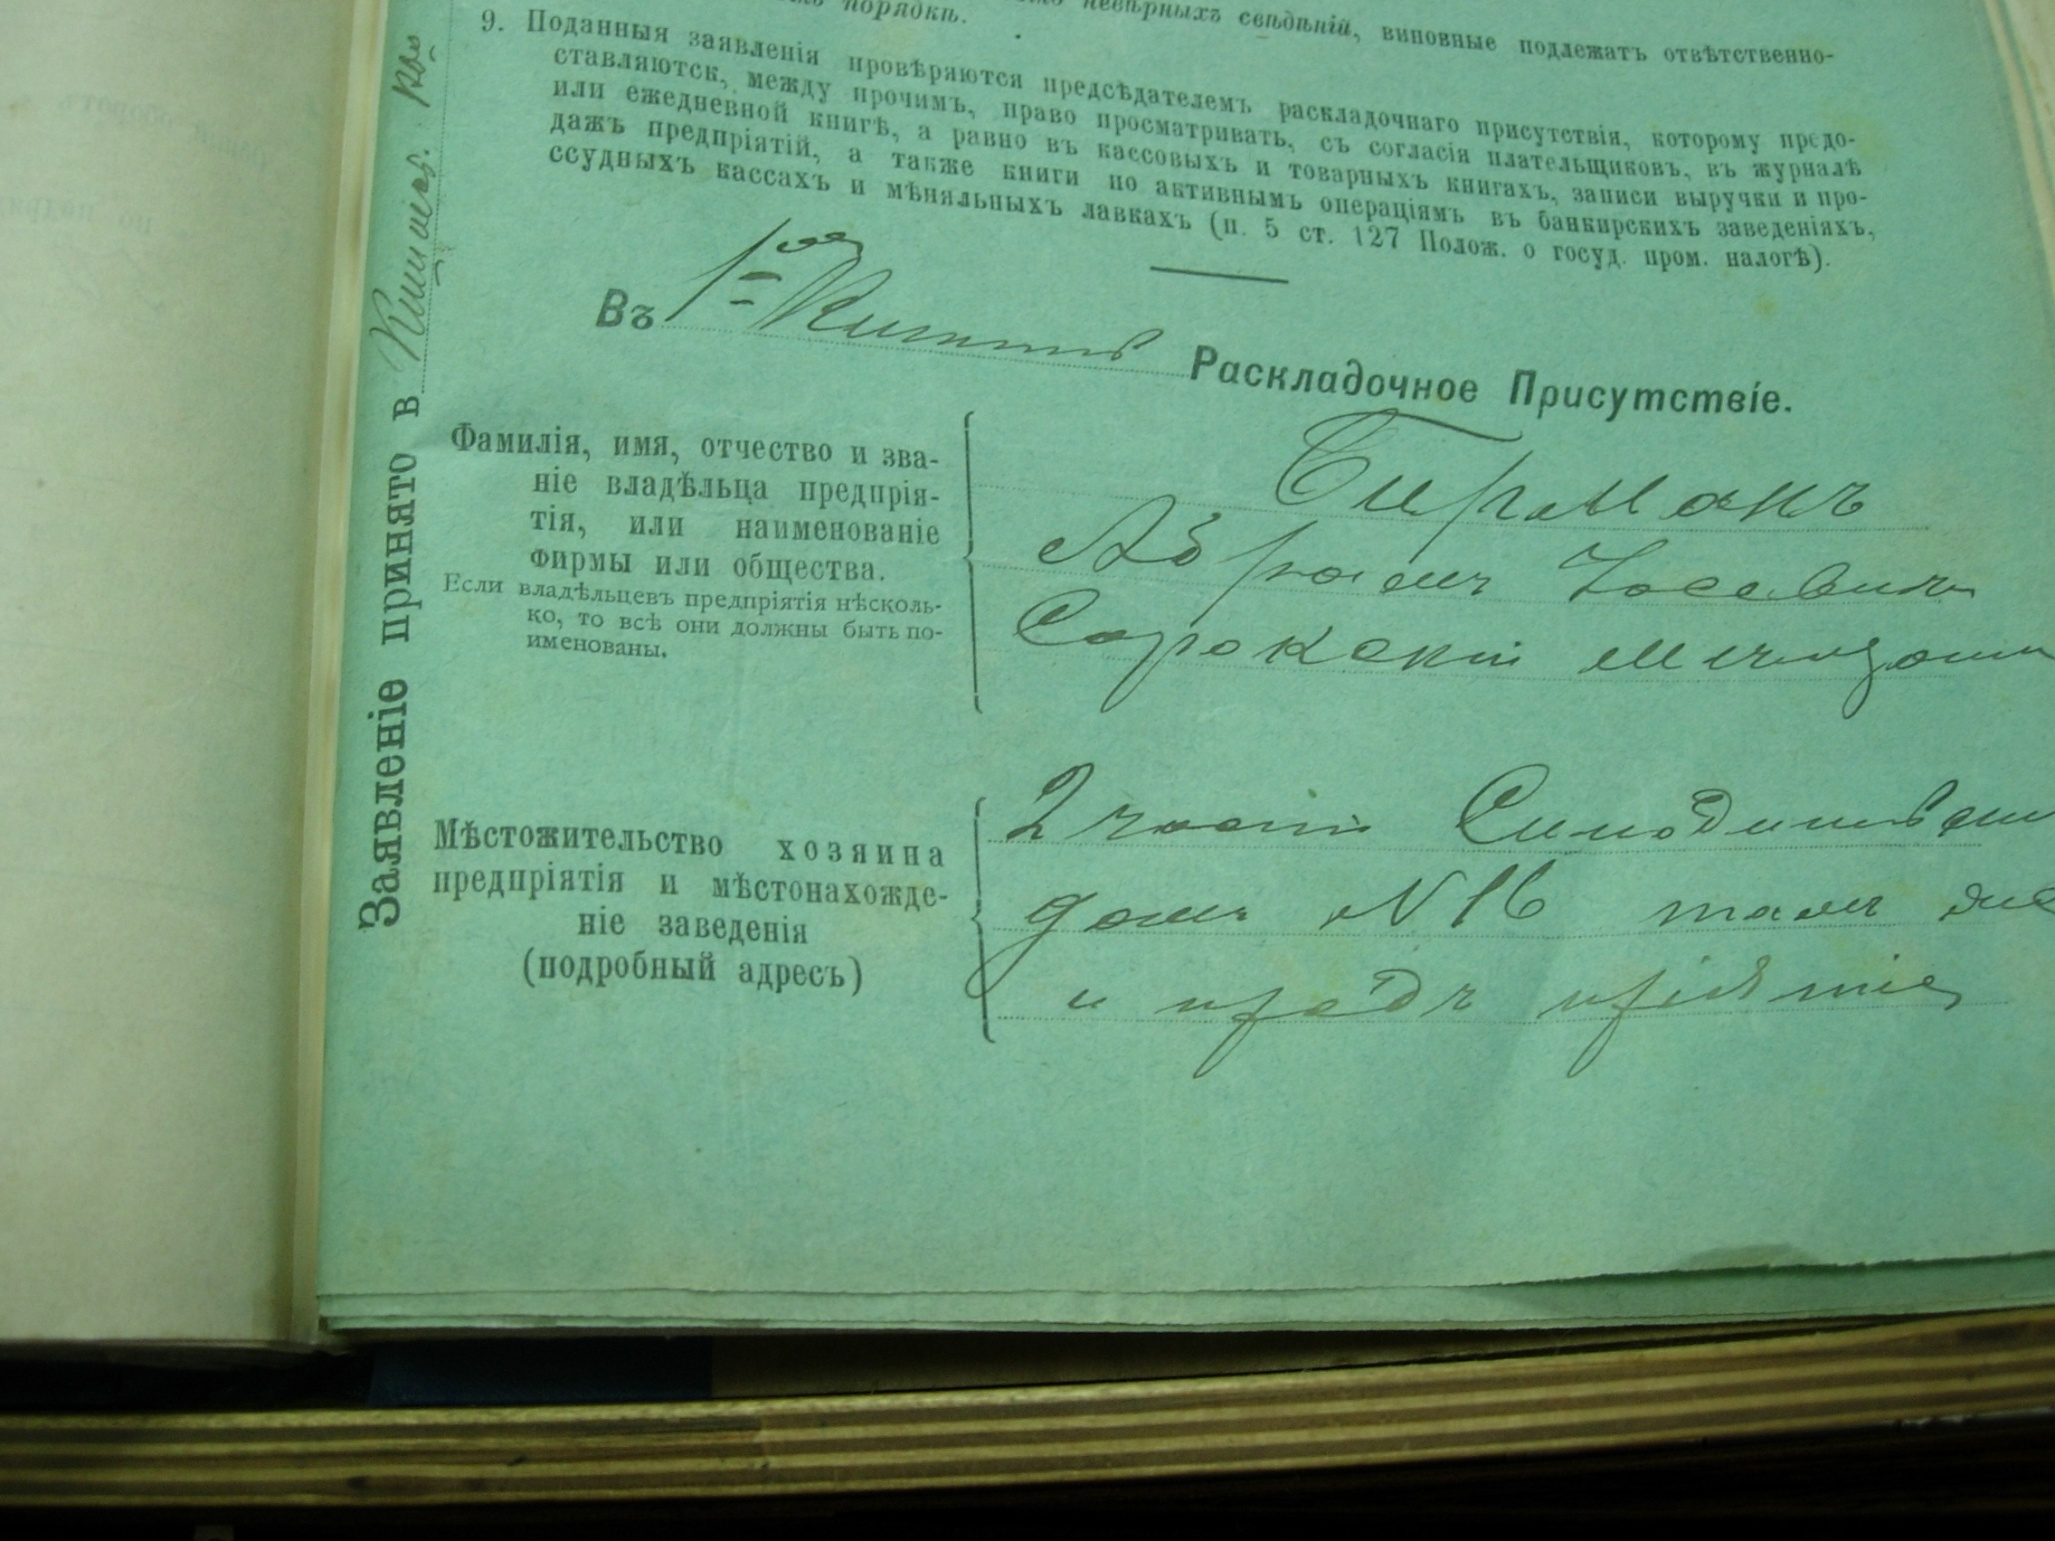 порядкѣ.
невѣрныхъ свѣдѣній, виновные подлежатъ отвѣтственно-
9. Поданныя заявленія провѣряются предсѣдателемъ раскладочнаго присутствія, которому предо-
ставляются, между прочимъ, право просматривать, съ согласія плательщиковъ, въ журналѣ
или ежедневной книгѣ, а равно въ кассовыхъ и товарныхъ книгахъ, записи выручки и про-
дажъ предпріятій, а также книги по активнымъ операціямъ въ банкирскихъ заведеніяхъ,
ссудныхъ кассахъ и мѣняльныхъ лавкахъ (п. 5 ст. 127 Полож. о госуд. пром. налогѣ).
Въ 1-ое Кишинев Раскладочное Присутствіе.
Фамилія, имя, отчество и зва-
ніе владѣльца предпрія-
тія, или наименованіе
фирмы или общества.
Если владѣльцевъ предпріятія нѣсколь-
ко, то всѣ они должны быть по-
именованы.
Бирманъ
Абрамъ Іосевичъ
Сорокскій мещани
Мѣстожительство хозяина
предпріятія и мѣстонахожде-
ніе заведенія
(подробный адресъ)
2 части Синодиновск
домъ N 16 тамъ же
и предъ пріятіе
Заявленіе принято в Кишинев.